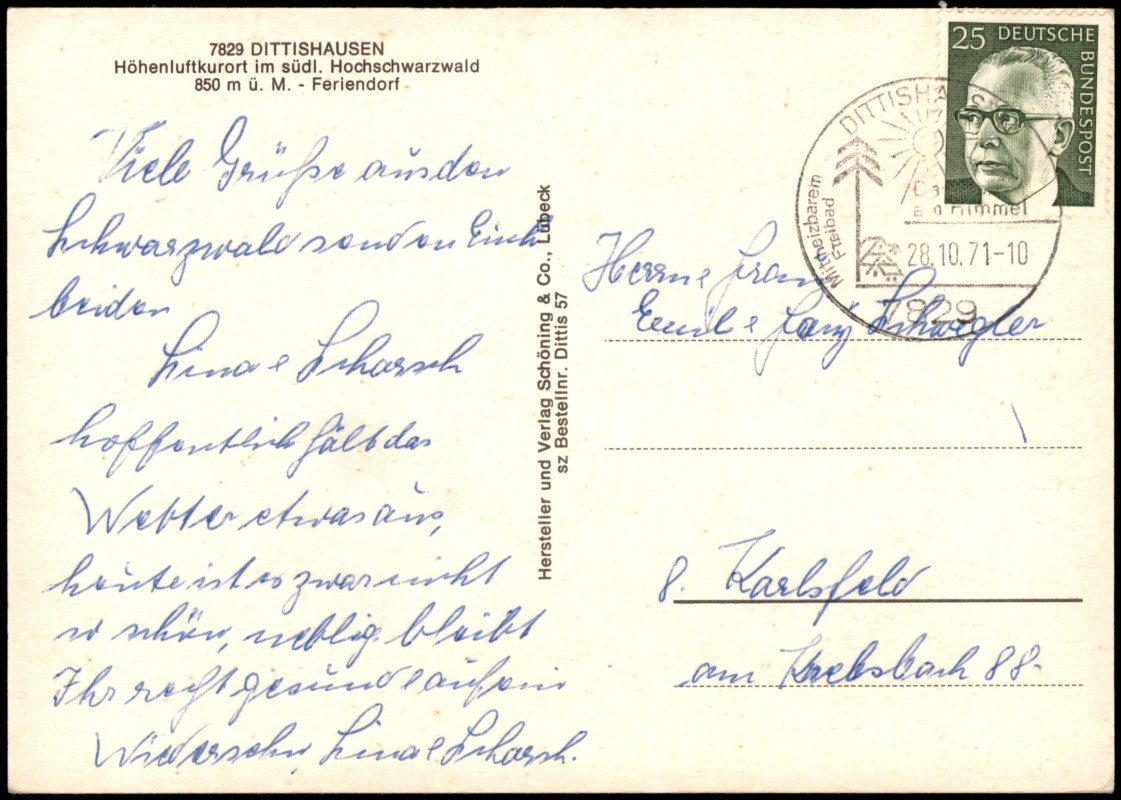 7829 DITTISHAUSEN
Höhenluftkurort im südl. Hochschwarzwald
850 m ü. M. - Feriendorf
Viele Grüße aus dem
Schwarzwald senden Euch
beiden
Lina & Scharsch
hoffentlich hält das
Wetter etwas aus,
heute ist es zwar nicht
so schön, neblig. bleibt
Ihr recht gesund & auf ein
Wiedersehn, Lina & Scharsch.
Hersteller und Verlag Schöning & Co., Lübeck
sz Bestellnr. Dittis 57
25 DEUTSCHE
BUNDESPOST
DITTISHAUS
Mit heizbarem
Freibad
am Himmel
28.10.71-10
7829
Herrn & Frau
Emil & Schwegler
8. Karlsfeld
am Krebsbach 88.